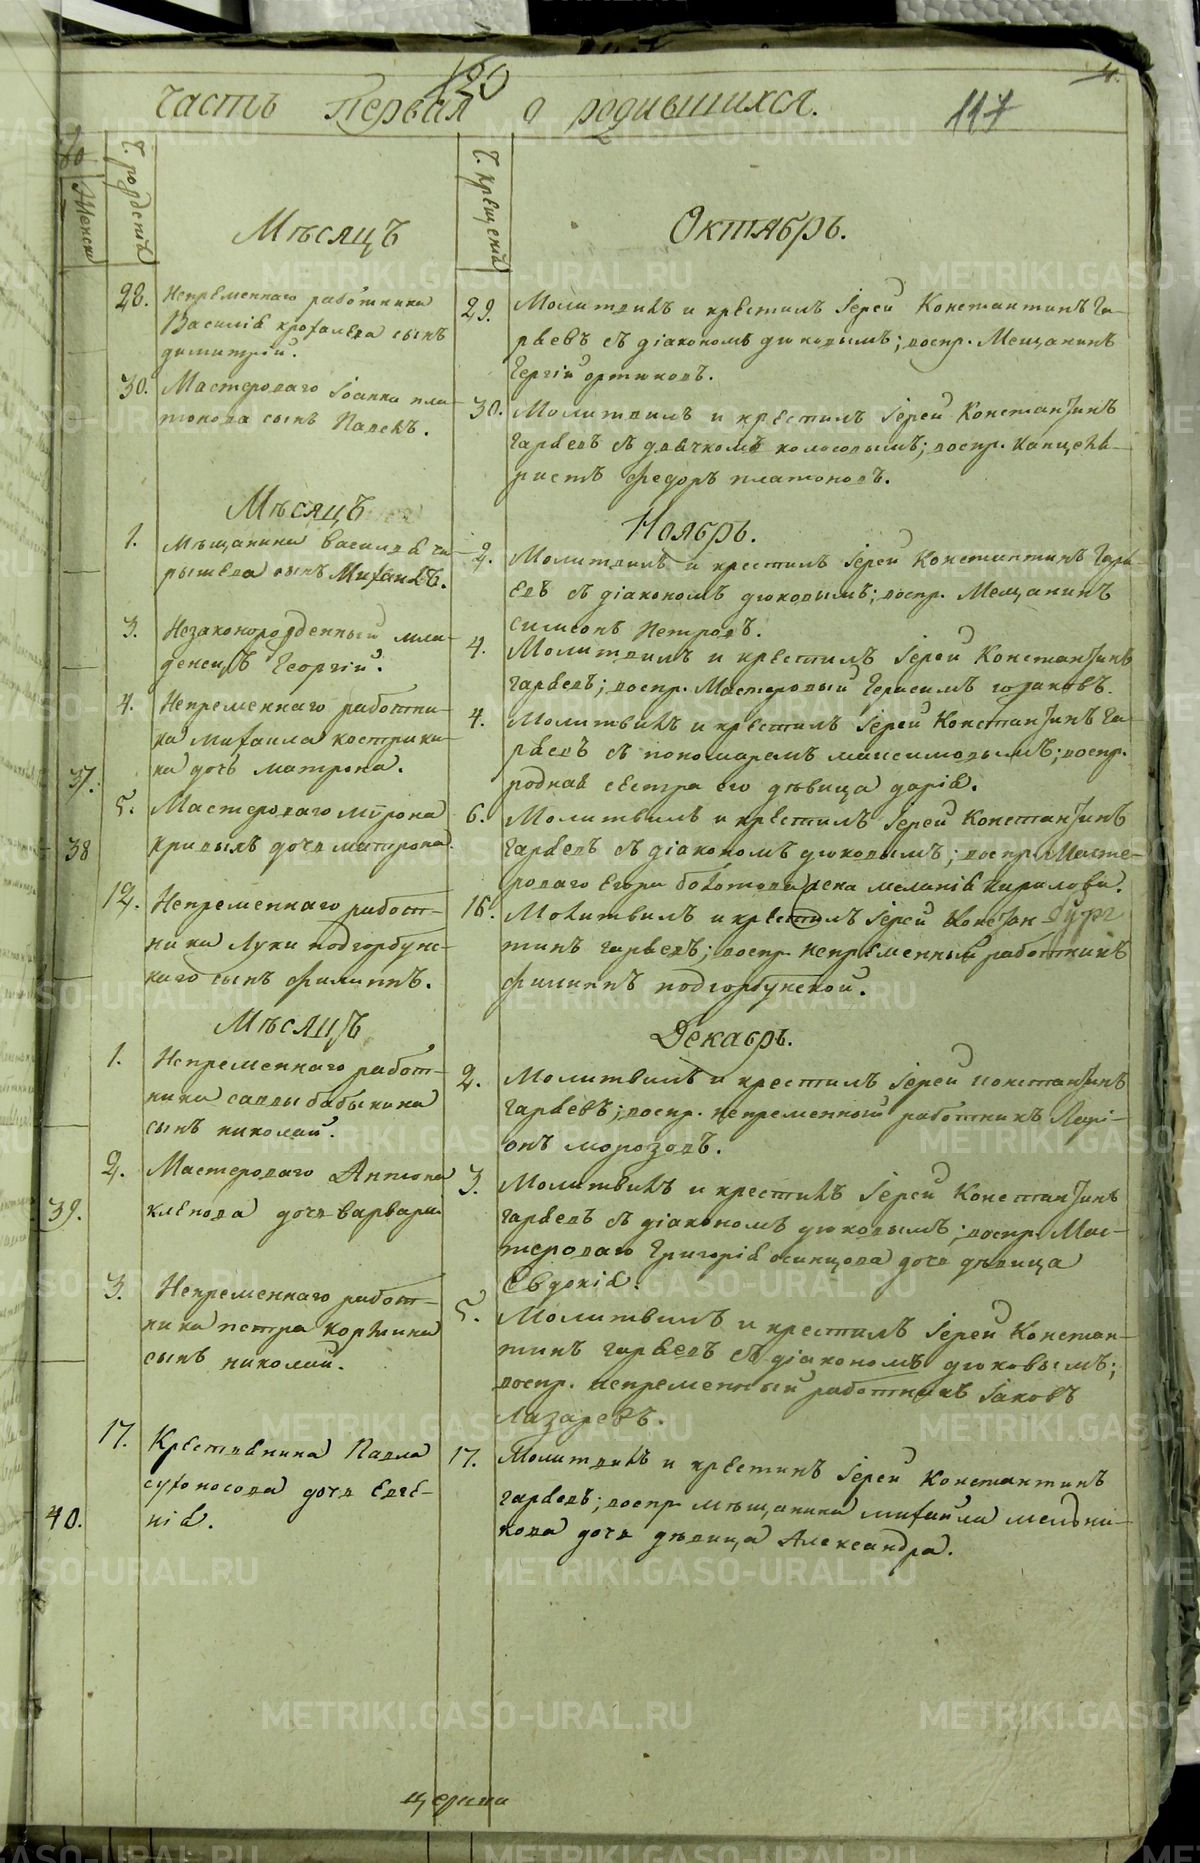 120
часть Первая о родившихся.
117
Женска
Ч. рождетва
Ч. крещенія
Мѣсяцъ
Октябрь.
28.
Непременнаго работника
Василія
сынъ
димитрій.
29.
Молитвилъ и крестилъ Іерей Константинъ Га-
ряевъ съ діакономъ дюковымъ; воспр. Мещанинъ
30.
Мастероваго Іоанна пла-
тонова сынъ Павелъ.
30.
Молитвилъ и крестилъ Іерей Константинъ
Гаряевъ съ дьячкомъ колосовымъ; воспр. канцеля-
ристъ Федоръ платоновъ.
Мѣсяцъ
Ноябрь.
1.
Мѣщанина Василья ча-
рышева сынъ Михаилъ.
2.
Молитвилъ и крестилъ Іерей Константинъ Гаря-
евъ съ діакономъ дюковымъ; воспр. Мещанинъ
симеонъ Петровъ.
3.
Незаконорожденный мла-
денецъ Георгій.
4.
Молитвилъ и крестилъ Іерей Константинъ
Гаряевъ; воспр. Мастеровый Герасимъ
37.
4.
Непременнаго работни-
ка михаила кострики-
на дочь матрона.
4.
Молитвилъ и крестилъ Іерей Константинъ Га-
ряевъ съ пономаремъ максимовымъ; воспр.
родная сестра его дѣвица дарія.
38
5.
Мастероваго мирона
кривыхъ дочь матрона.
6.
Молитвилъ и крестилъ Іерей Константинъ
Гаряевъ съ діакономъ дюковымъ; воспр. Масте-
роваго Егора болотова жена меланія кирилова.
12.
Непременнаго работ-
ника Луки подгорбунс-
каго сынъ филиппъ.
16.
Молитвилъ и крестилъ Іерей Констан
тинъ гаряевъ; воспр. непременный работникъ
филиппъ подгорбунской.
Мѣсяцъ
Декабрь.
1.
Непременнаго работ-
ника саввы бабыкина
сынъ николай.
2.
Молитвилъ и крестилъ Іерей константинъ
Гаряевъ; воспр. непременный работникъ Лари-
онъ морозовъ.
39.
2.
Мастероваго Антона
кленова дочь варвара
3.
Молитвилъ и крестилъ Іерей Константинъ
гаряевъ съ діакономъ дюковымъ; воспр. Мас-
тероваго Григорія осинцова дочь дѣвица
Евдокія.
3.
Непременнаго работ-
ника петра
сынъ николай.
5.
Молитвилъ и крестилъ Іерей Констан-
тинъ гаряевъ съ діакономъ дюковымъ;
воспр. непременный работникъ Іаковъ
Лазаревъ.
40.
17.
Крестьянина Павла
сухоносова дочь Евге-
нія.
17.
Молитвилъ и крестилъ Іерей Константинъ
гаряевъ; воспр. мѣщанина михайла мельни-
кова дочь дѣвица Александра.
METRIKI.GASO-URAL.RU